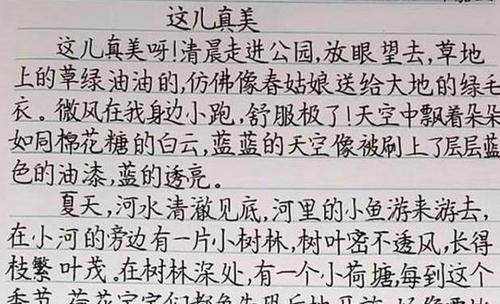 这儿真美
这儿真美呀!清晨走进公园,放眼望去,草地
上的草绿油油的,仿佛像春姑娘送给大地的绿毛
衣。微风在我身边小跑,舒服极了!天空中飘着朵朵
如同棉花糖的白云,蓝蓝的天空像被刷上了层层蓝
色的油漆,蓝的透亮。
夏天,河水清澈见底,河里的小鱼游来游去,
在小河的旁边有一片小树林,树叶密不透风,长得
枝繁叶茂。在树林深处,有一个小荷塘,每到这个